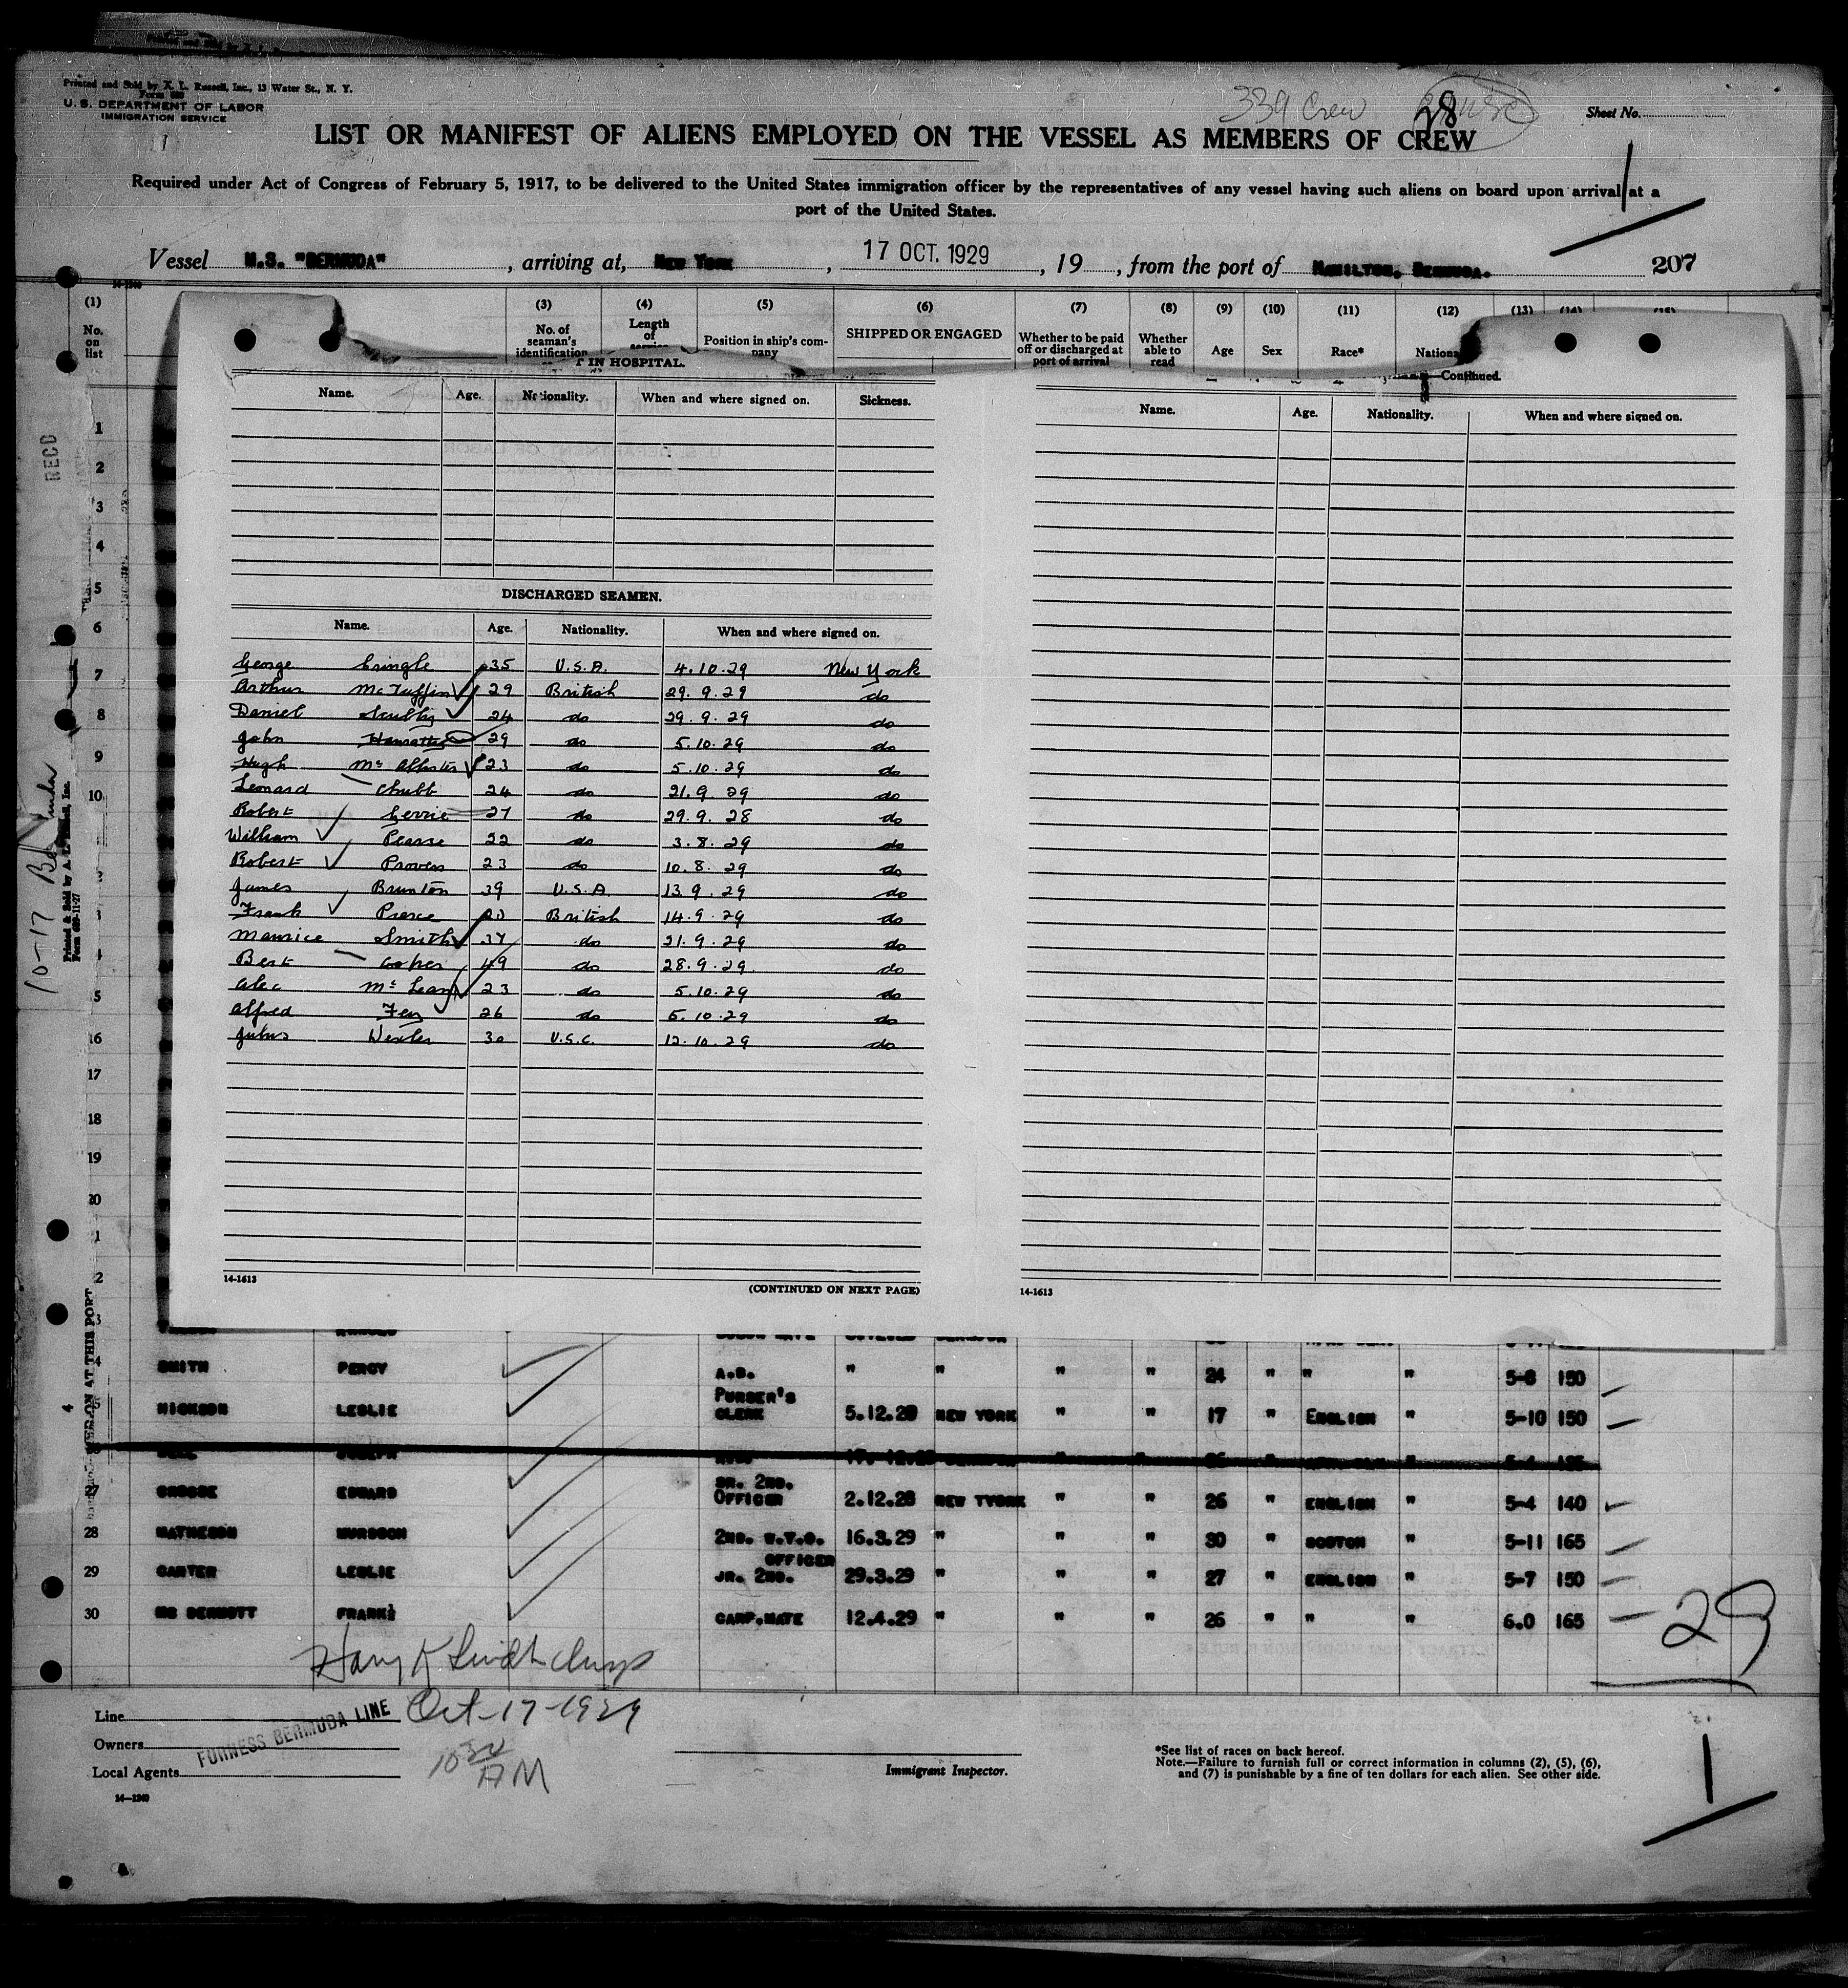 Printed and Sold by X. L. Russell, Inc., 13 Water St., N. Y.
U. S. DEPARTMENT OF LABOR
IMMIGRATION SERVICE
339 Crew
28
Sheet No.
LIST OR MANIFEST OF ALIENS EMPLOYED ON THE VESSEL AS MEMBERS OF CREW
Required under Act of Congress of February 5, 1917, to be delivered to the United States immigration officer by the representatives of any vessel having such aliens on board upon arrival at a
port of the United States.
Vessel M.S. "BERMUDA" , arriving at, NEW YORK , 17 OCT. 1929 , 19 , from the port of HAMILTON, BERMUDA. 207
(1) (3) (4) (5) (6) (7) (8) (9) (10) (11) (12) (13)
No. on list
No. of seaman's identification
Length of
Position in ship's company
SHIPPED OR ENGAGED
Whether to be paid off or discharged at port of arrival
Whether able to read
Age
Sex
Race*
IN HOSPITAL.
Name. Age. Nationality. When and where signed on. Sickness.
Continued.
Name. Age. Nationality. When and where signed on.
DISCHARGED SEAMEN.
Name. Age. Nationality. When and where signed on.
George Cringle 35 U.S.A. 4.10.29 New York
Arthur 29 British 29.9.29 do
Daniel 24 do 29.9.29 do
John 29 do 5.10.29 do
Hugh Mc Allister 23 do 5.10.29 do
Leonard Chubb 24 do 21.9.29 do
Robert 27 do 29.9.28 do
William Pearse 22 do 3.8.29 do
Robert Proven 23 do 10.8.29 do
James Brunton 39 U.S.A 13.9.29 do
Frank Pierce 20 British 14.9.29 do
Maurice Smith 37 do 21.9.29 do
Bert 49 do 28.9.29. do
Alec Mc Lean 23 do 5.10.29 do
Alfred Fey 26 do 5.10.29 do
Julius Wexler 30 U.S.C. 12.10.29 do
14-1613 (CONTINUED ON NEXT PAGE)
14-1613
RECD
10-17 Bermuda
Form 680-11-27
SMITH PERCY A.B. " " " " 24 " " " 5-8 150
HICKSON LESLIE PURSER'S CLERK 5.12.28 NEW YORK " " 17 " ENGLISH " 5-10 150
27 CROSSE EDWARD SR. 2ND. OFFICER 2.12.28 NEW TYORK " " 26 " ENGLISH " 5-4 140
28 MATHESON MURDOCH 2ND. W.T.O. 16.3.29 " " " 30 " SCOTCH " 5-11 165
29 CARTER LESLIE JR. 2ND. OFFICER 29.3.29 " " " 27 " ENGLISH " 5-7 150
30 MC DERMOTT FRANK CARP.MATE 12.4.29 " " " 26 " " " 6.0 165
29
Oct-17-1929
10 30 AM
Line
Owners
Local Agents
FURNESS BERMUDA LINE
Immigrant Inspector.
*See list of races on back hereof.
Note.—Failure to furnish full or correct information in columns (2), (5), (6),
and (7) is punishable by a fine of ten dollars for each alien. See other side.
14—1240
1